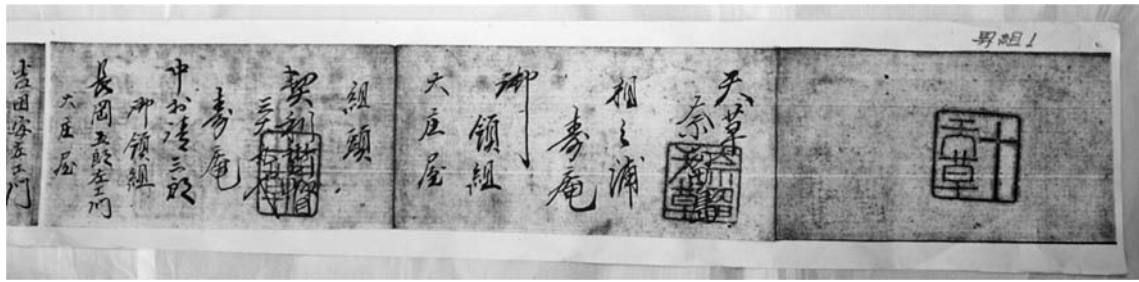 組1
十
天草
天草
奈
浦
寿庵
御
領組
大庄屋
組頭
契利斯督
寿庵
中村清三郎
御領組
長岡五郎左エ門
大庄屋
吉田安左エ門